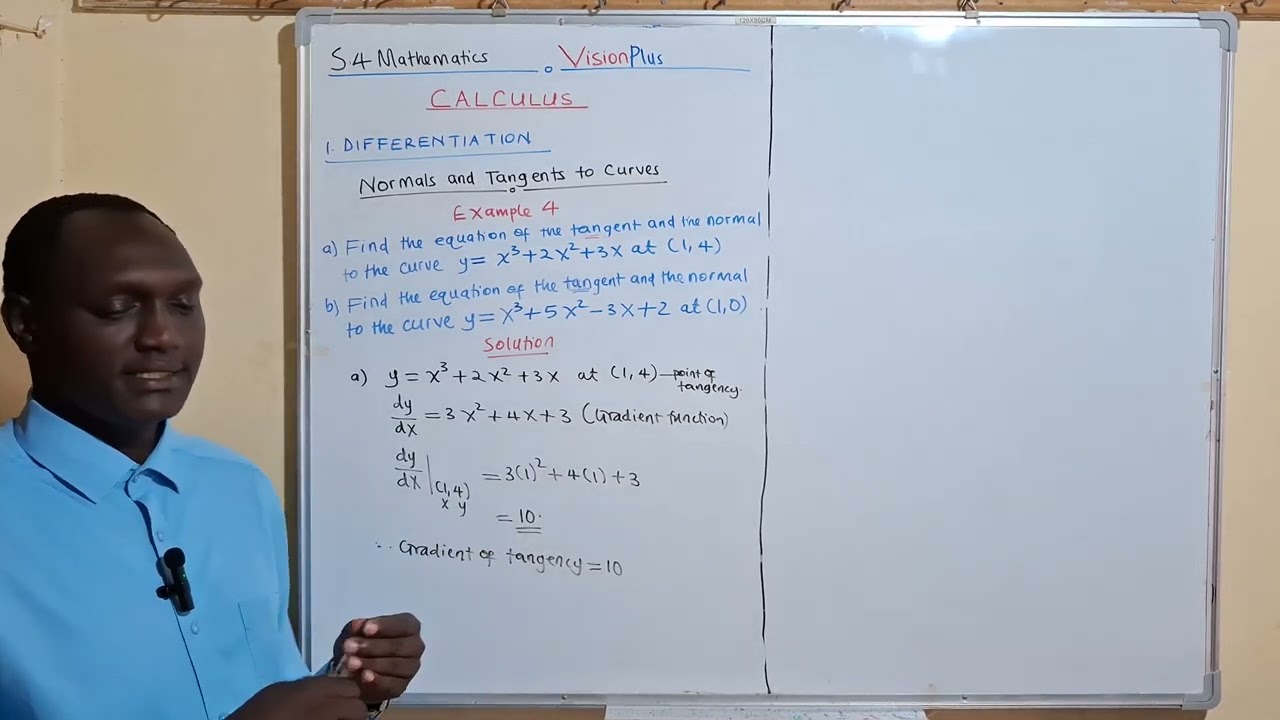 120X90CM
S.4 Mathematics VisionPlus
CALCULUS
1. DIFFERENTIATION
Normals and Tangents to Curves
Example 4
a) Find the equation of the tangent and the normal
to the curve y = x³+2x²+3x at (1,4)
b) Find the equation of the tangent and the normal
to the curve y = x³+5x²-3x+2 at (1,0).
Solution
a) y = x³+2x²+3x at (1,4) — point of
tangency.
dy/dx = 3x²+4x+3 (Gradient function)
dy/dx |(1,4) = 3(1)²+4(1)+3
x y
= 10.
∴ Gradient of tangency = 10